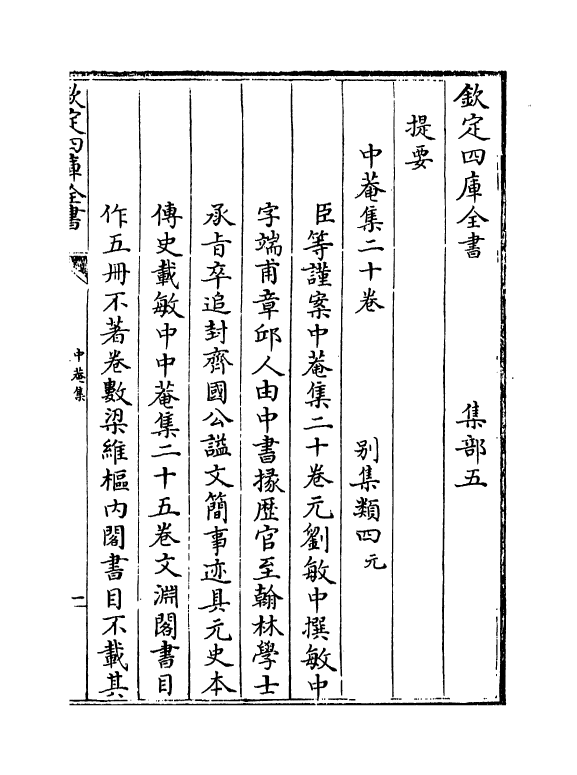 欽定四庫全書　集部五
提要
中菴集二十卷　別集類四元
臣等謹案中菴集二十卷元劉敏中撰敏中
字端甫章邱人由中書掾歴官至翰林學士
承旨卒追封齊國公謚文簡事迹具元史本
傳史載敏中中菴集二十五卷文淵閣書目
作五冊不著卷數梁維樞内閣書目不載其
欽定四庫全書
中菴集
一